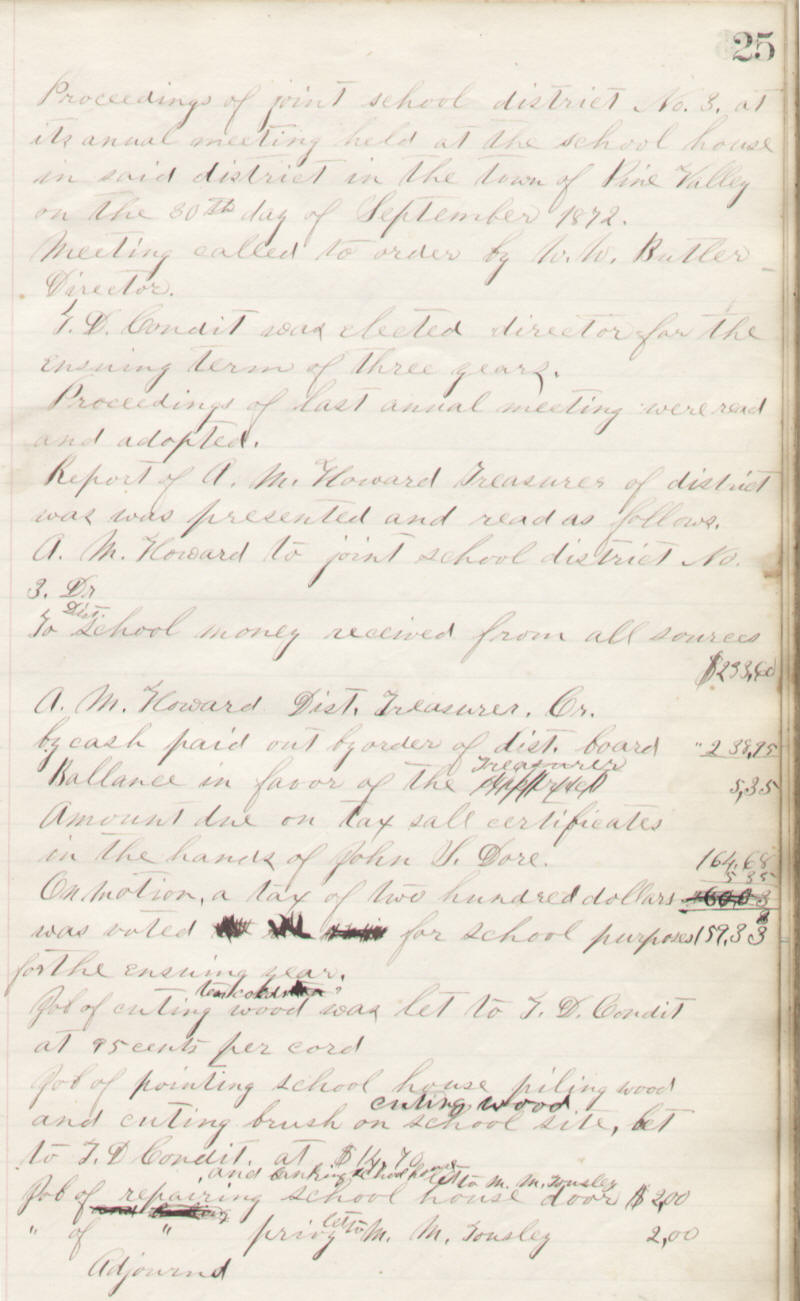 25
Proceedings of joint school district No. 3. at
its anual meeting held at the school house
in said district in the town of Pine Valley
on the 30th day of September 1872.
Meeting called to order by W. W. Butler
Director.
T. D. Condit was elected director for the
ensuing term of three years.
Proceedings of last anual meeting were read
and adopted.
Report of A. M. Howard Treasurer of district
was was presented and read as follows.
A. M. Howard to joint school district No.
3. Dr
Dist.
To school money received from all sources
$233,60
A. M. Howard Dist. Treasurer. Cr.
by cash paid out by order of dist. board " 238,95
Treasurer
Ballance in favor of the 5,35
Amount due on tax sale certificates
in the hands of John S. Dore. 164,68
5 35
On motion, a tax of two hundred dollars
was voted for school purposes 159,33
for the ensuing year.
Job of cuting wood was let to T. D. Condit
at 95 cents per cord
Job of pointing school house piling wood
cuting wood
and cuting brush on school site, let
to T. D Condit. at
and banking school house let to M. M. Tousley
Job of repairing school house door $ 2,00
" of " privy let to M. M. Tousley 2,00
Adjournd